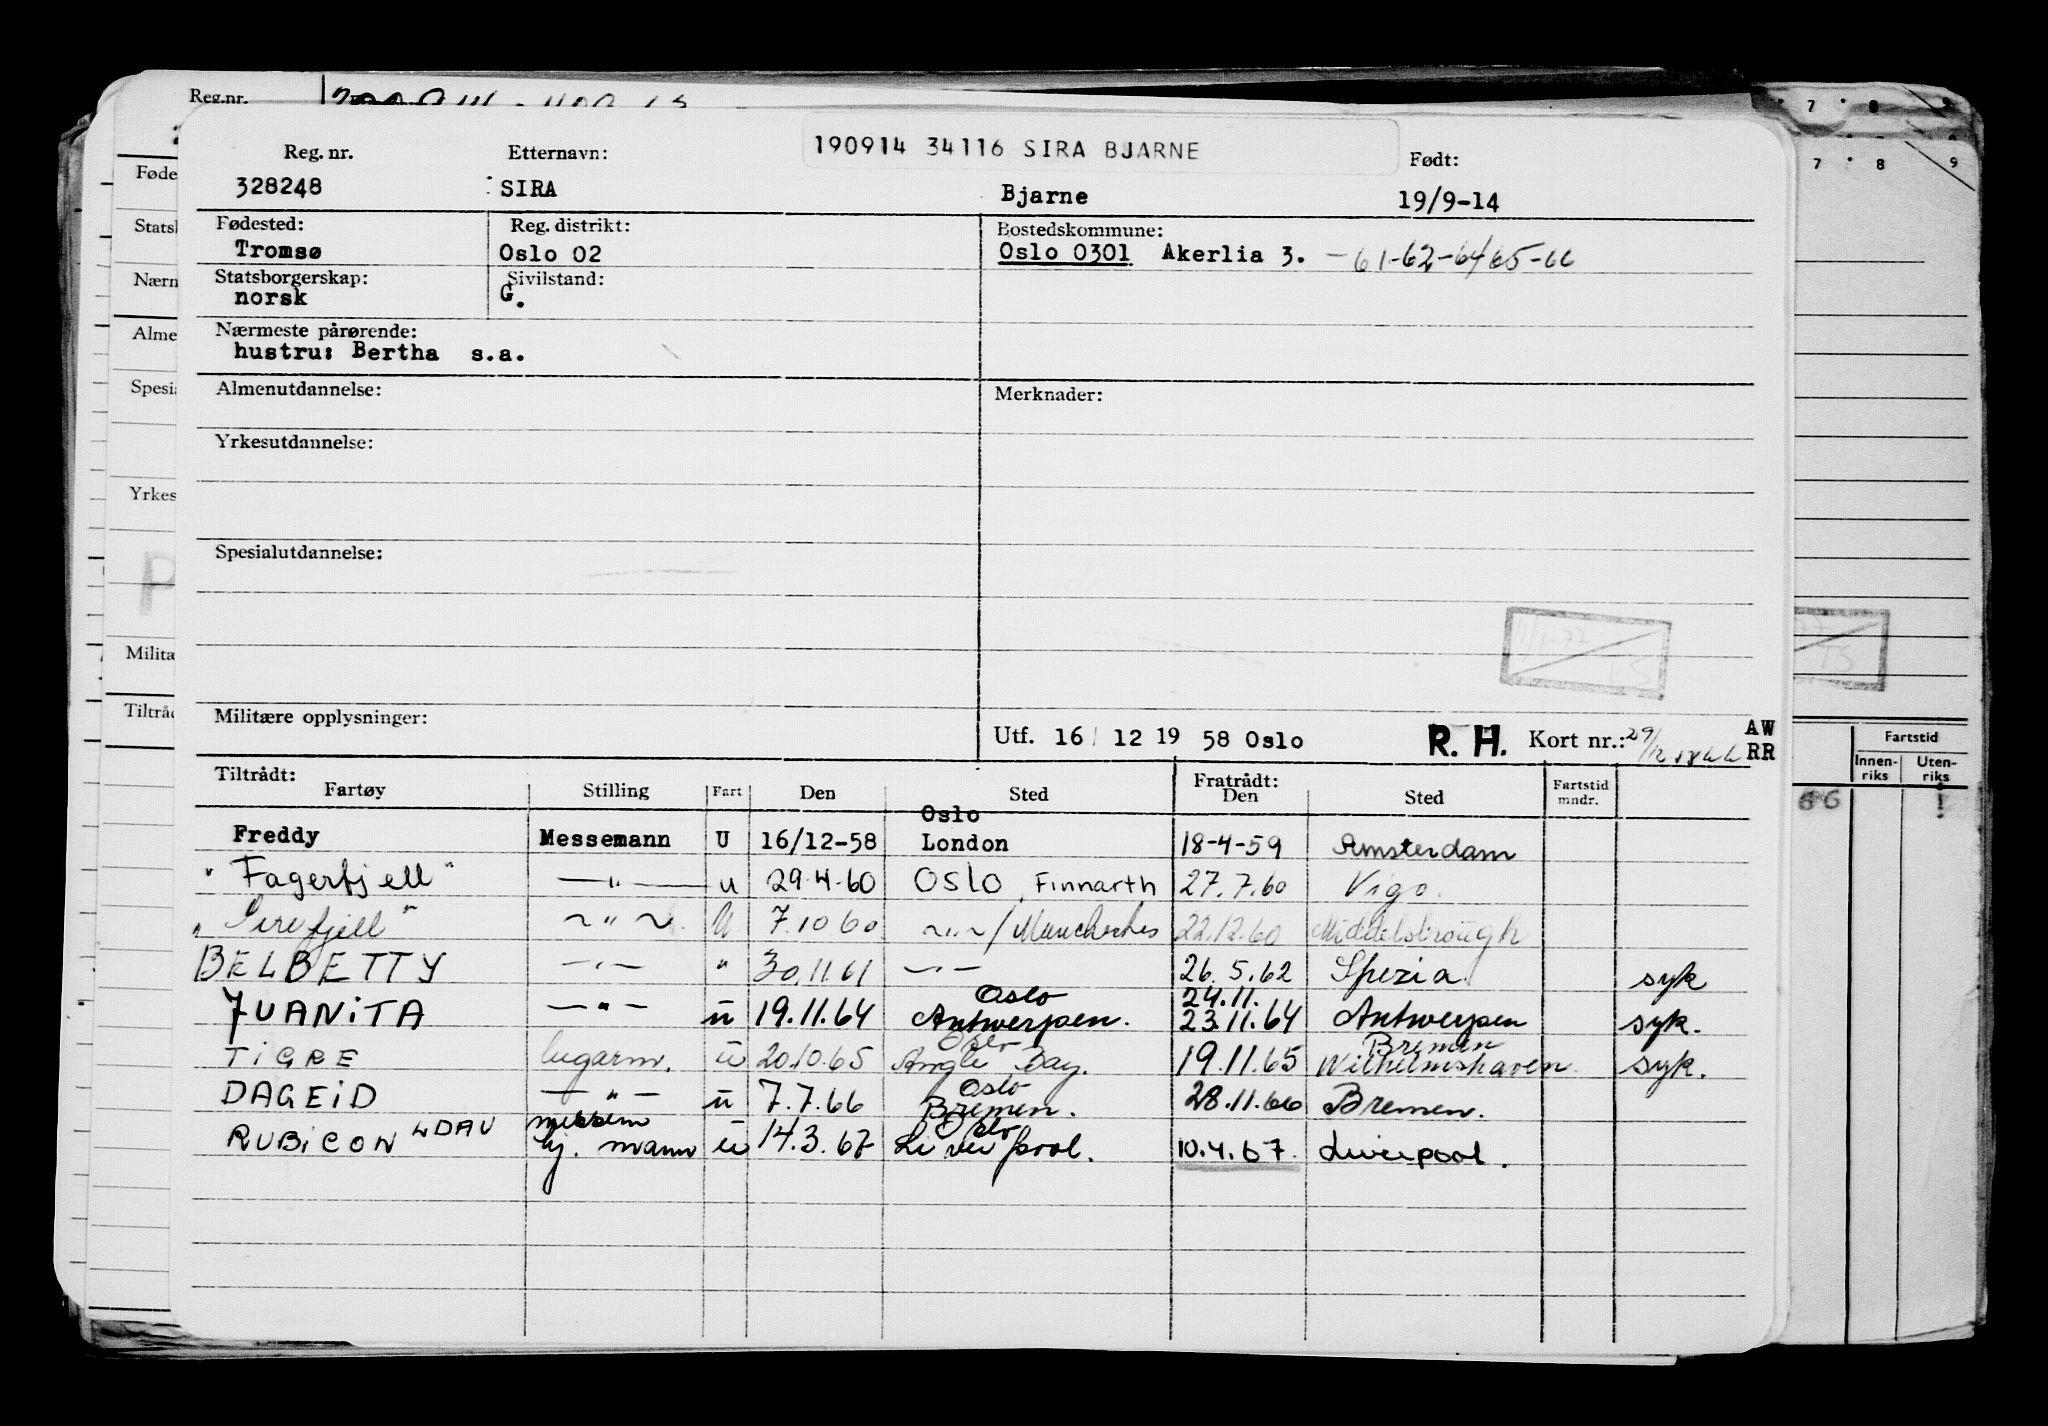 Reg.nr.
190914 34116 SIRA BJARNE
Reg. nr. Etternavn: Født:
328248 SIRA Bjarne 19/9-14
Fødested: Reg. distrikt: Bostedskommune:
Tromsø Oslo 02 Oslo 0301 Akerlia 3. -61-62-64 65-66
Statsborgerskap: Sivilstand:
norsk G.
Nærmeste pårørende:
hustru: Bertha s.a.
Almenutdannelse: Merknader:
Yrkesutdannelse:
Spesialutdannelse:
11/1-77
TS
Militære opplysninger:
Utf. 16/ 12 19 58 Oslo R. H. Kort nr.: AW
RR
Tiltrådt: Fratrådt:
Fartøy Stilling Fart Den Sted Den Sted Fartstid mndr.
Freddy Messemann U 16/12-58 Oslo London 18-4-59 Amsterdam
"Fagerfjell" —"— u 29.4.60 OSLO Finnarth 27.7.60 Vigo.
"Sirefjell" ~"~ U 7.10 60 ~"~/ 22.12.60 Middelsbrough
BELBETTY —"— " 30.11.61 —"— 26.5.62 Spezia syk
JUANITA —"— u 19.11.64 Oslo Antwerpen. 24.11. 23.11.64 Antwerpen syk.
TIGRE lugarm. u 20.10.65 Oslo Angle Bay. 19.11.65 Bremen Wilhelmshaven syk.
DAGEID —"— u 7.7.66 Oslo Bremen. 28.11.66 Bremen.
RUBICON LDAV hj. mann u 14.3.67 Oslo Liverpool. 10.4.67. Liverpool.
Føde
Statsb
Nærm
Alme
Spesia
Yrkes
Militæ
Tiltråd
7 8 9
7 8 9
TS
Fartstid
Innen-riks Uten-riks
66